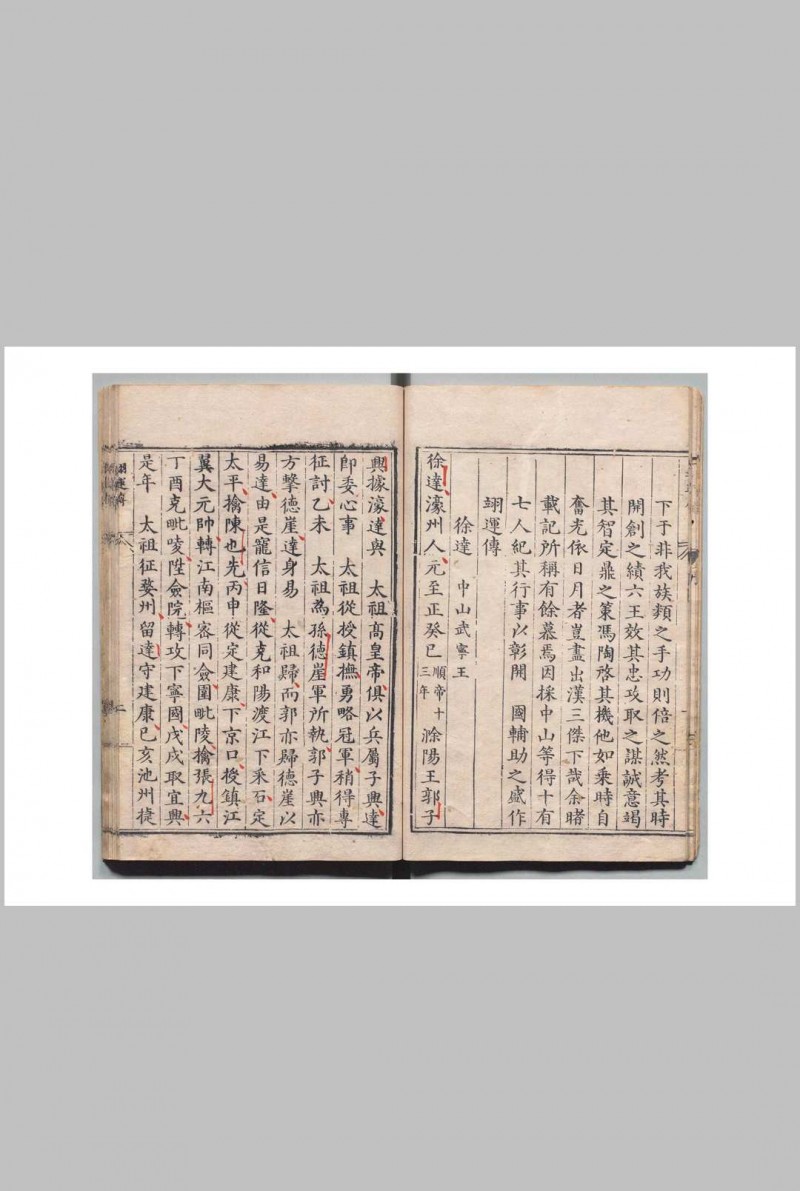 下于非我族類之手功則倍之然考其時
開創之績六王效其忠攻取之謀誠意竭
其智定鼎之策馮陶啓其機他如乘時自
奮光依日月者豈盡出漢三傑下哉余睹
載記所稱有餘慕焉因採中山等得十有
七人紀其行事以彰開　國輔助之盛作
翊運傳
徐達　中山武寧王
徐達濠州人元至正癸巳順帝十三年滁陽王郭子
興據濠達與　太祖高皇帝俱以兵屬子興達
卽委心事　太祖從授鎮撫勇略冠軍稍得專
征討乙未　太祖爲孫德崖軍所執郭子興亦
方擊德崖達身易　太祖歸而郭亦歸德崖以
易達由是寵信日隆從克和陽渡江下采石定
太平擒陳也先丙申從定建康下京口授鎮江
翼大元帥轉江南樞密同僉圍毗陵擒張九六
丁酉克毗陵陞僉院轉攻下寧國戊戌取宜興
是年　太祖征婺州留達守建康己亥池州捷